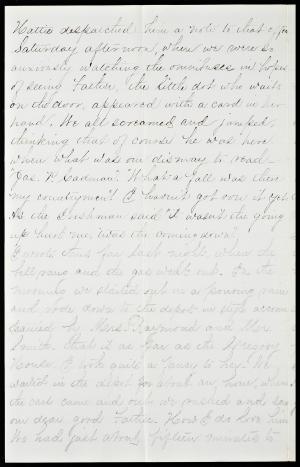 Hattie despatched him a note to that effect
Saturday afternoon, when we were so
anxiously watching the omnibusses in hopes
of seeing Father, the little dot who waits
on the door, appeared with a card in her
hand. We all screamed and jumped,
thinking that of course he was here
when what was our dismay to read—
"Jas. P. Cadman". "What a fall was there
my countrymen"! I haven't got over it yet.
As the Irishman said "it wasn't the going
up hurt me, 'twas the coming down".
I wrote thus far last night, when the
bell rang and the gas went out. In the
morning we started out in a pouring rain
and rode down to the depot in style accom-
panied by Mrs. Raymond and Mrs.
Smith, that is as far as the
House. I took quite a fancy to her. We
waited in the depot for about an hour, when
the cars came and out we rushed and saw
our dear good Father. How I do love him
We had just about fifteen minutes to